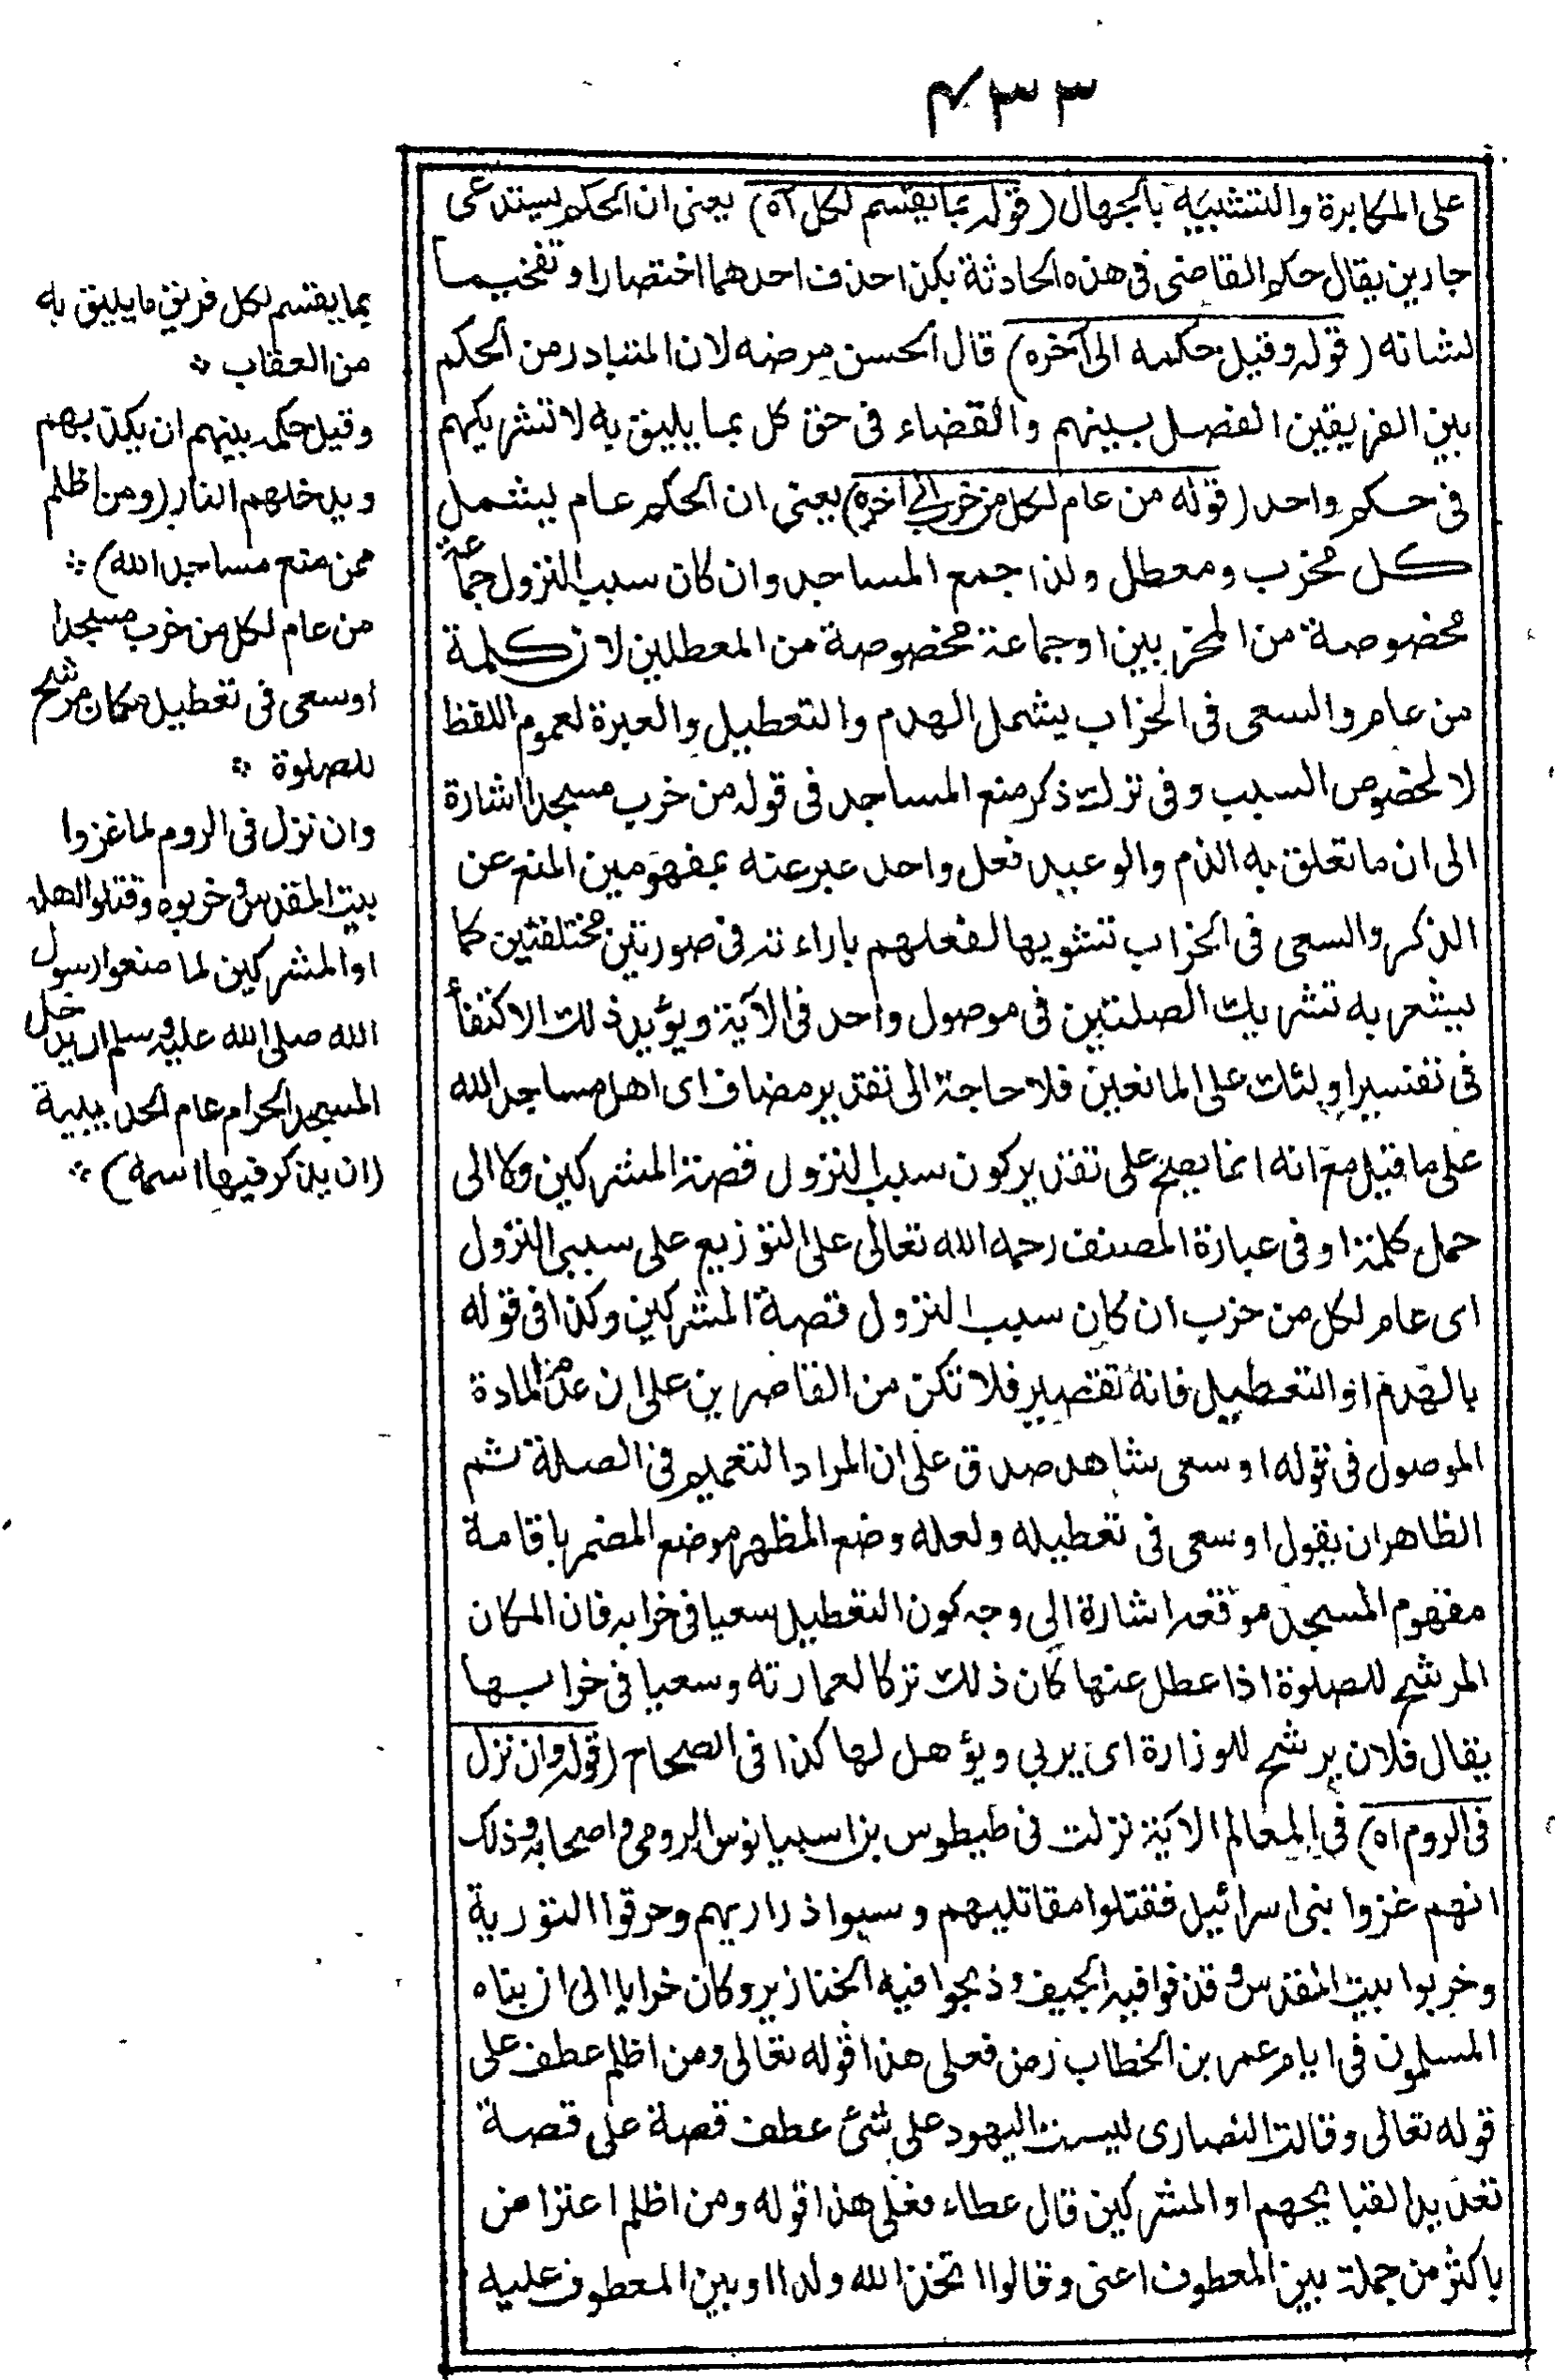 ٤٣٣
على المكابرة والتشبيه بالجهال (قوله بما يقسم لكل آه) يعنى ان الحكم يستدعى
جارين يقال حكم القاضى فى هذه الحادثة بكذا حذف احدهما اختصارا وتفخيما
لشانه (قوله وقيل حكمه الى آخره) قال الحسن مرضه لان المتبادر من الحكم
بين الفريقين الفصل بينهم والقضاء فى حق كل بما يليق به لا تشريكهم
فى حكم واحد (قوله من عام لكل من خرب الى آخره) يعنى ان الحكم عام يشمل
كل مخرب ومعطل ولذا جمع المساجد وان كان سبب النزول جماعة
مخصوصة من المخربين او جماعة مخصوصة من المعطلين لان كلمة
من عام والسعى فى الخراب يشمل الهدم والتعطيل والعبرة لعموم اللفظ
لا لخصوص السبب وفى ترك ذكر منع المساجد فى قوله من خرب مسجدا اشارة
الى ان ما تعلق به الذم والوعيد فعل واحد عبر عنه بمفهومين المنع عن
الذكر والسعى فى الخراب تشويها لفعلهم باراءته فى صورتين مختلفتين كما
يشعر به تشريك الصلتين فى موصول واحد فى الآية ويؤيد ذلك الاكتفأ
فى تفسير اولئك على المانعين فلا حاجة الى تقدير مضاف اى اهل مساجد الله
على ما قيل مع انه انما يصح على تقدير كون سبب النزول قصة المشركين ولا الى
حمل كلمة او فى عبارة المصنف رحمه الله تعالى على التوزيع على سببى النزول
اى عام لكل من خرب ان كان سبب النزول قصة المشركين وكذا فى قوله
بالهدم او التعطيل فانه تقصير فلا تكن من القاصرين على ان عدم المادة
الموصول فى قوله او سعى شاهد صدق على ان المراد التعميم فى الصلة ثم
الظاهر ان يقول او سعى فى تعطيله ولعله وضع المظهر موضع المضمر باقامة
مفهوم المسجد موقعه اشارة الى وجه كون التعطيل سعيا فى خرابه فان المكان
المرشح للصلوة اذا عطل عنها كان ذلك تركا لعمارته وسعيا فى خرابها
يقال فلان يرشح للوزارة اى يربى ويؤهل لها كذا فى الصحاح (قوله وان نزل
فى الروم اه) فى المعالم الآية نزلت فى طيطوس بن اسبيانوس الرومى واصحابه وذلك
انهم غزوا بنى اسرائيل فقتلوا مقاتليهم وسبوا ذراريهم وحرقوا التورية
وخربوا بيت المقدس وقذفوا فيه الجيف وذبحوا فيه الخنازير وكان خرابا الى ان بناه
المسلمون فى ايام عمر بن الخطاب رض فعلى هذا قوله تعالى ومن اظلم عطف على
قوله تعالى وقالت النصارى ليست اليهود على شئ عطف قصة على قصة
تعديد القبايحهم او المشركين قال عطاء فعلى هذا قوله ومن اظلم اعتراض
باكثر من جملة بين المعطوف اعنى وقالوا اتخذ الله ولدا وبين المعطوف عليه
بما يقسم لكل فريق ما يليق به
من العقاب ÷
وقيل حكمه بينهم ان يكذبهم
ويدخلهم النار (ومن اظلم
ممن منع مساجد الله) ÷
من عام لكل من خرب مسجدا
او سعى فى تعطيل مكان مرشح
للصلوة ÷
وان نزل فى الروم لما غزوا
بيت المقدس وخربوه وقتلوا اهله
او المشركين لما منعوا رسول
الله صلى الله عليه وسلم ان يدخل
المسجد الحرام عام الحديبية
(ان يذكر فيها اسمه) ÷